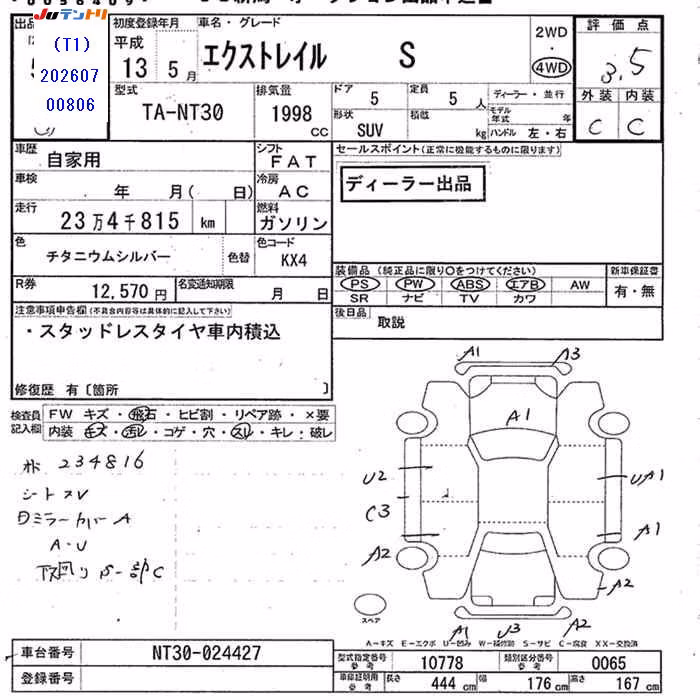 Juテントリ
(T1)
202607
00806
初度登録年月
平成
13 5月
車名・グレード
エクストレイル S
2WD
・
4WD
評価点
3.5
外装 内装
C C
型式
TA-NT30
排気量
1998
CC
ドア
5
定員
5人
形状
SUV
積載
kg
ディーラー・並行
モデル年式 年
ハンドル 左・右
車歴
自家用
シフト
FAT
車検
年 月( 日)
冷房
AC
走行
23万4千815 km
燃料
ガソリン
色
チタニウムシルバー
色替
色コード
KX4
R券
12,570円
名変通知期限
月 日
セールスポイント(正常に機能するものに限ります)
ディーラー出品
装備品(純正品に限り〇をつけてください)
PS PW ABS エアB AW
SR ナビ TV カワ
新車保証書
有・無
後日品
取説
注意事項申告欄(不具合内容等は具体的に記入して下さい)
・スタッドレスタイヤ車内積込
修復歴 有〔箇所 〕
検査員記入欄
FW キズ・飛石・ヒビ割・リペア跡・×要
内装・キズ・汚レ・コゲ・穴・スレ・キレ・破レ
234816
シートスV
ミラーカバーA
A・U
下回りS-部C
A1 A3
A1
U2
C3
A2
UA1
A1
A2
スペア
A1 U3 A2
A-キズ E-エクボ U-凹み W-補修跡 S-サビ C-腐食 XX-交換済
車台番号
NT30-024427
登録番号
型式指定番号
参考
10778
類別区分番号
参考
0065
車庫証明用
参考
長さ 444 cm 幅 176 cm 高さ 167 cm